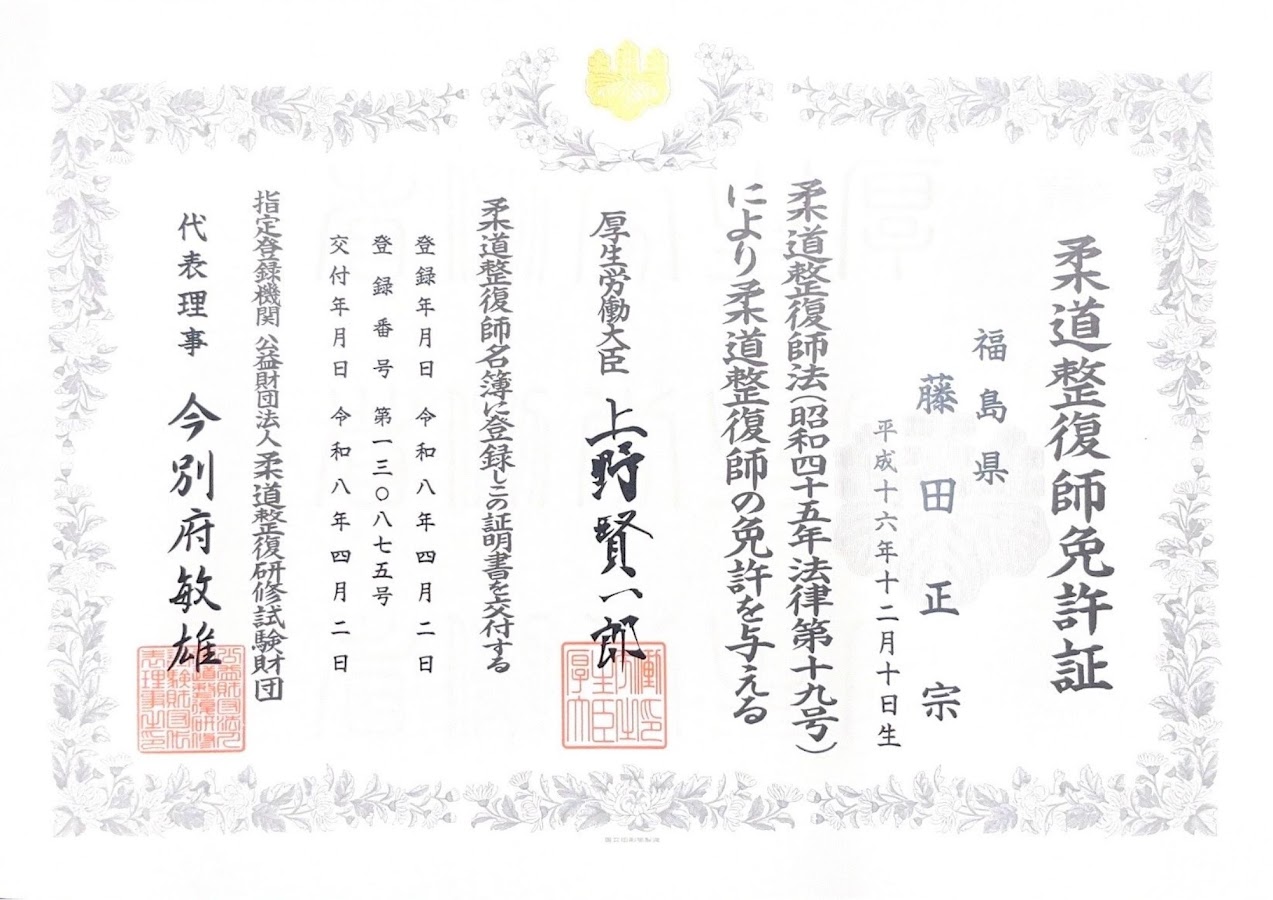 柔道整復師免許証
福島県
藤田正宗
平成十六年十二月十日生
柔道整復師法(昭和四十五年法律第十九号)
により柔道整復師の免許を与える
厚生労働大臣 上野賢一郎
柔道整復師名簿に登録しこの証明書を交付する
登録年月日 令和八年四月二日
登録番号 第一三〇八七五号
交付年月日 令和八年四月二日
指定登録機関 公益財団法人柔道整復研修試験財団
代表理事 今別府敏雄